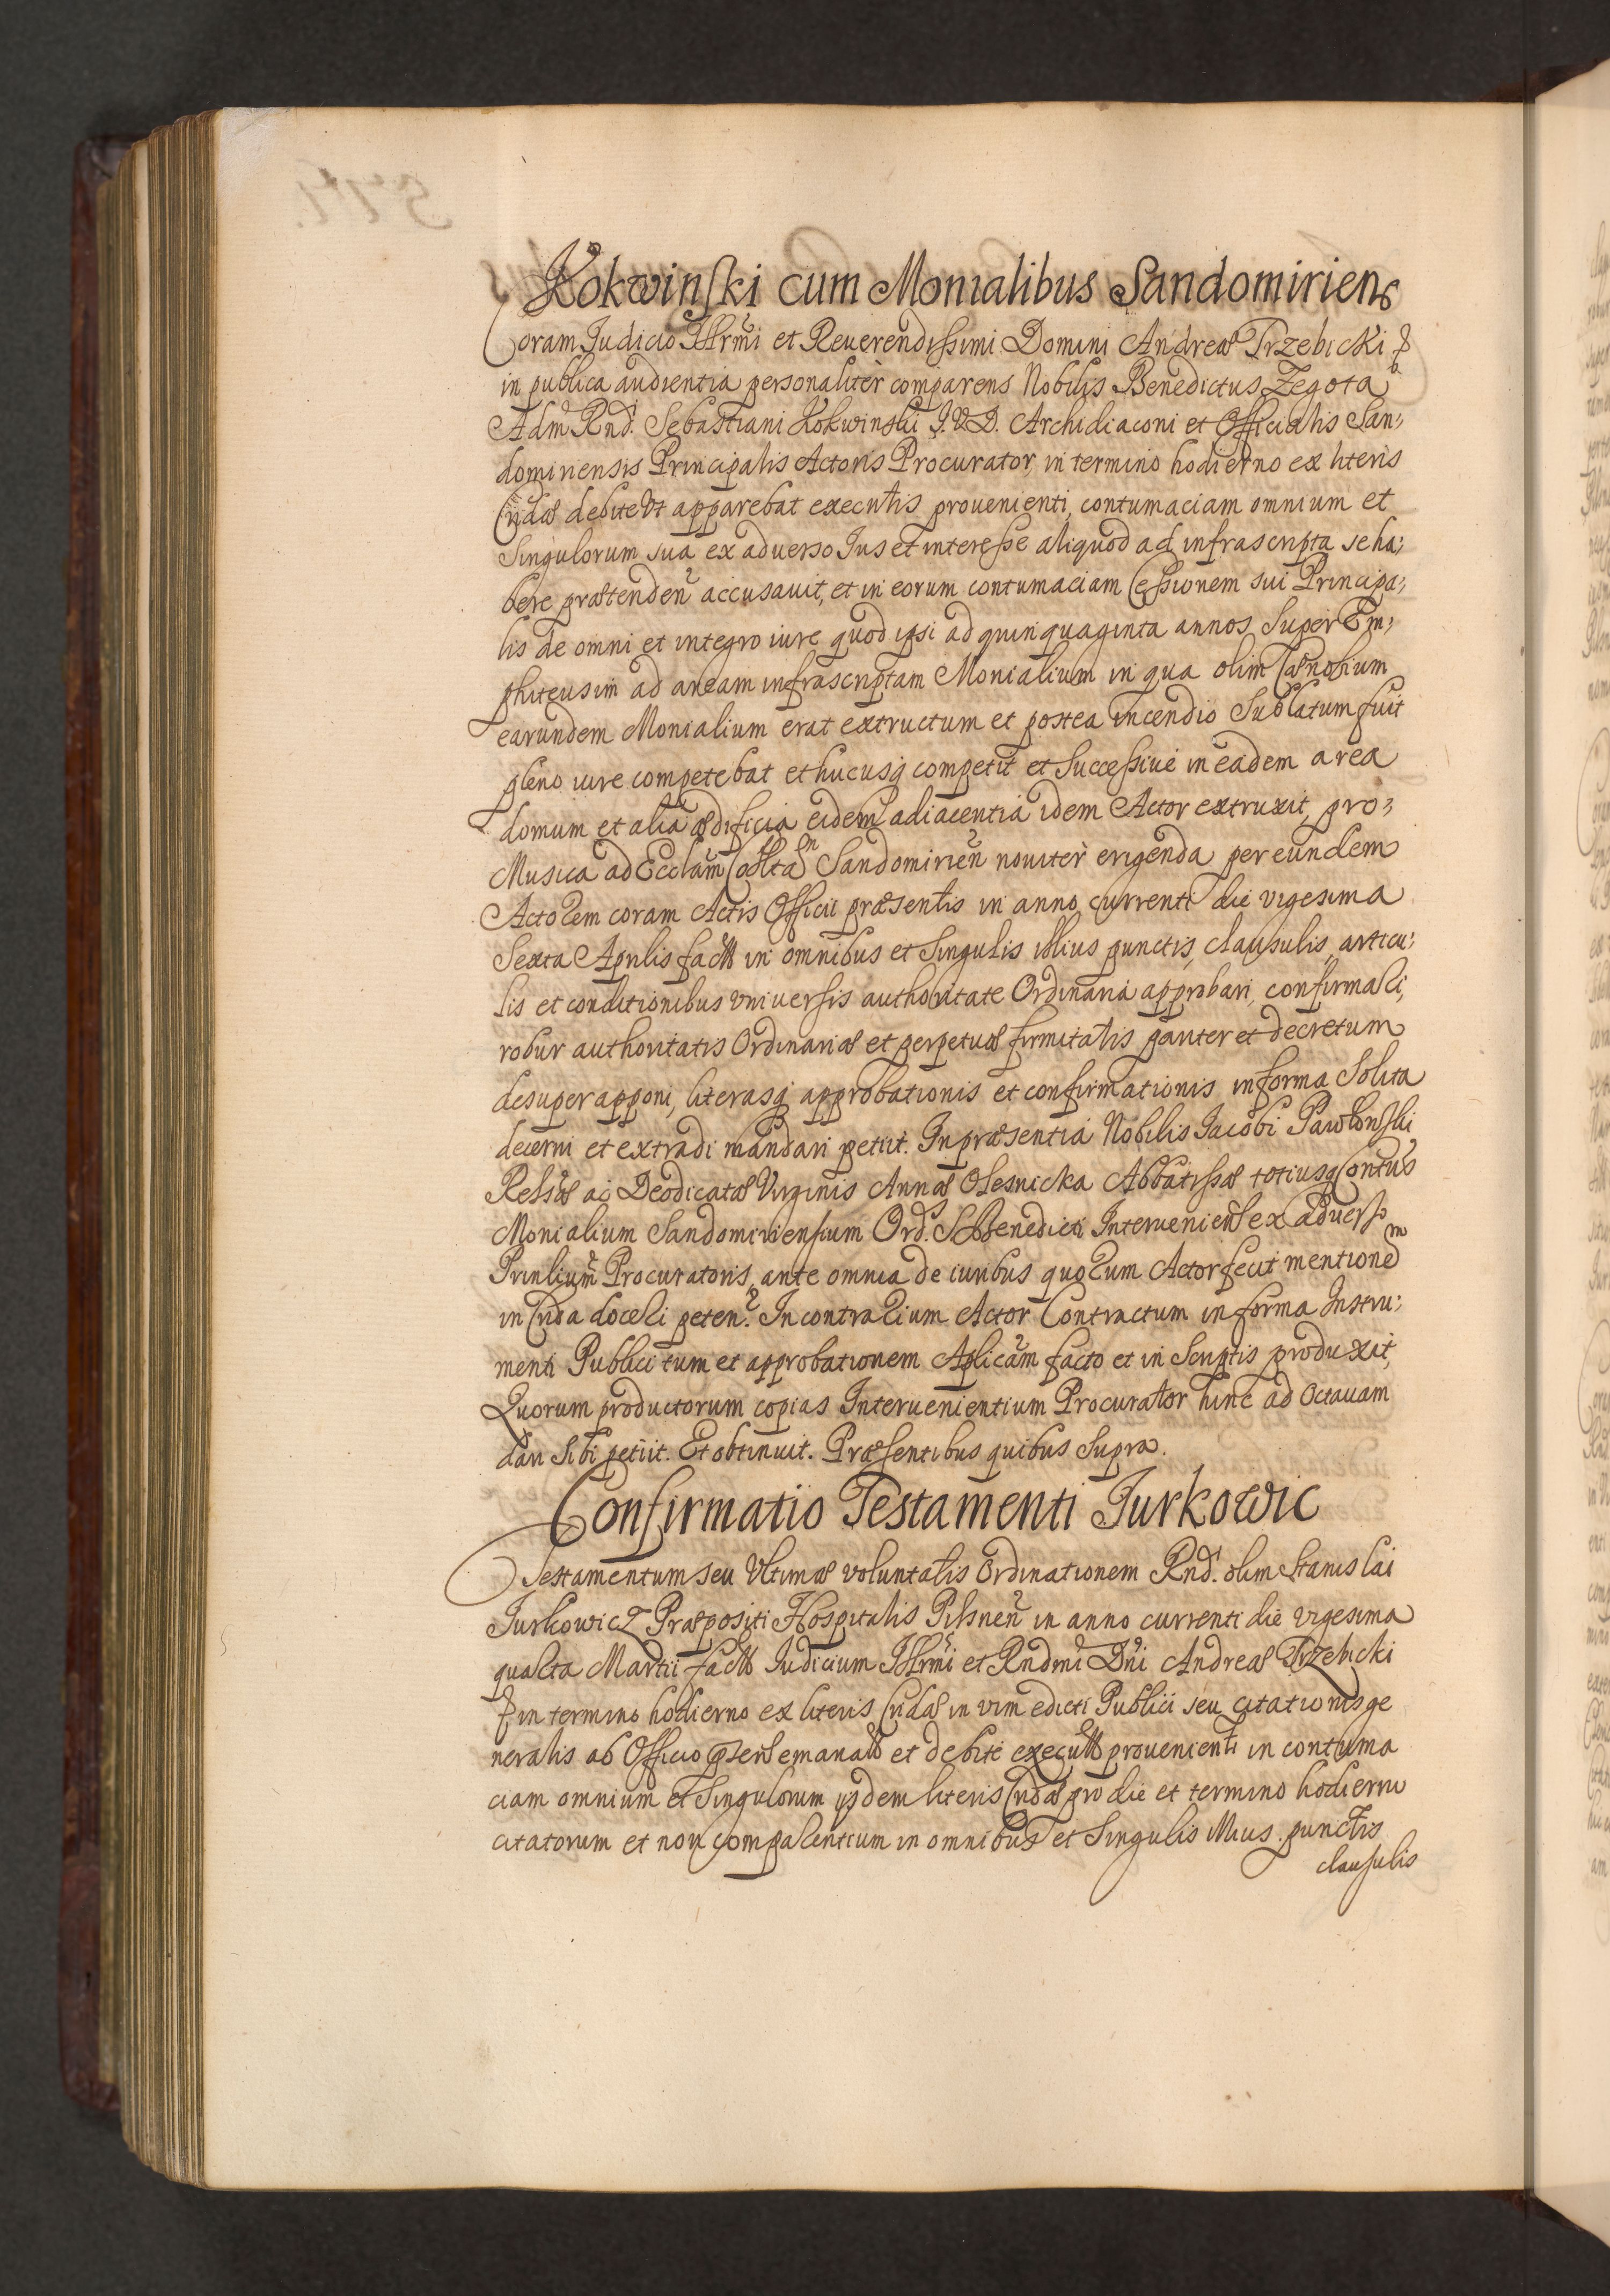 Kokwinski cum Monialibus Sandomiriens
Coram Judicio Illrmi et Reuerendissimi Domini Andreæ Trzebicki &
in publica audientia personaliter comparens Nobilis Benedictus Zegota
Adm Rnd. Sebastiani Kokwinski J.V.D. Archidiaconi et Officialis San;
domiriensis Principalis Actoris Procurator, in termino hodierno ex literis
Cridæ debite vt apparebat executis prouenienti, contumaciam omnium et
Singulorum sua ex aduerso Jus et interesse aliquod ad infrascripta se ha;
bere prætenden accusauit, et in eorum contumaciam Cessionem sui Principa;
lis de omni et integro iure quod ipsi ad quinquaginta annos Super Em;
phiteusim ad aream infrascriptam Monialium in qua olim Cænobium
earundem Monialium erat extructum et postea incendio Sublatum fuit
pleno iure competebat et hucusq competit et Successiue in eadem area
domum et alia ædificia eidem adiacentia idem Actor extruxit, pro;
Musica ad Ecclam Collta m Sandomirien nouiter erigenda per eundem
Actorem coram Actis Officii præsentis in anno currenti die vigesima
Sexta Aprilis factt in omnibus et Singulis illius punctis, clausulis, articu;
lis et conditionibus vniuersis authoritate Ordinaria approbari, confirmari,
robur authoritatis Ordinariæ et perpetuæ firmitatis pariter et decretum
desuper apponi, literasq approbationis et confirmationis in forma Solita
decerni et extradi mandari petiit. In præsentia Nobilis Jacobi Pawlonski
Relsæ ac Deodicatæ Virginis Annæ Olesnicka Abbatissæ totiusq Contus
Monialium Sandomiriensium Ord. S. Benedicti Interueniens ex aduerso
Prinlium Procuratoris, ante omnia de iuribus quorum Actor fecit mentionem
in Crida doceri peten. In contrarium Actor Contractum in forma Instru;
menti Publici tum et approbationem Aplicam facto et in Scriptis produxit,
Quorum productorum copias Interuenientium Procurator hinc ad Octauam
dari Sibi petiit. Et obtinuit. Præsentibus quibus Supra.
Confirmatio Testamenti Jurkowic
Testamentum seu Vltimæ voluntatis Ordinationem Rnd. olim Stanislai
Jurkowicz Præpositi Hospitalis Pilsnen in anno currenti die vigesima
quarta Martii factt Judicium Illrmi et Rndmi Dni Andreæ Trzebicki
& in termino hodierno ex literis Cridæ in vim edicti Publici seu citationis ge
neralis ab Officio præsens emanatt et debite executt prouenienti in contuma
ciam omnium et Singulorum ijsdem literis Cridæ pro die et termino hodierno
citatorum et non comparentium in omnibus et Singulis illius punctis
clausulis